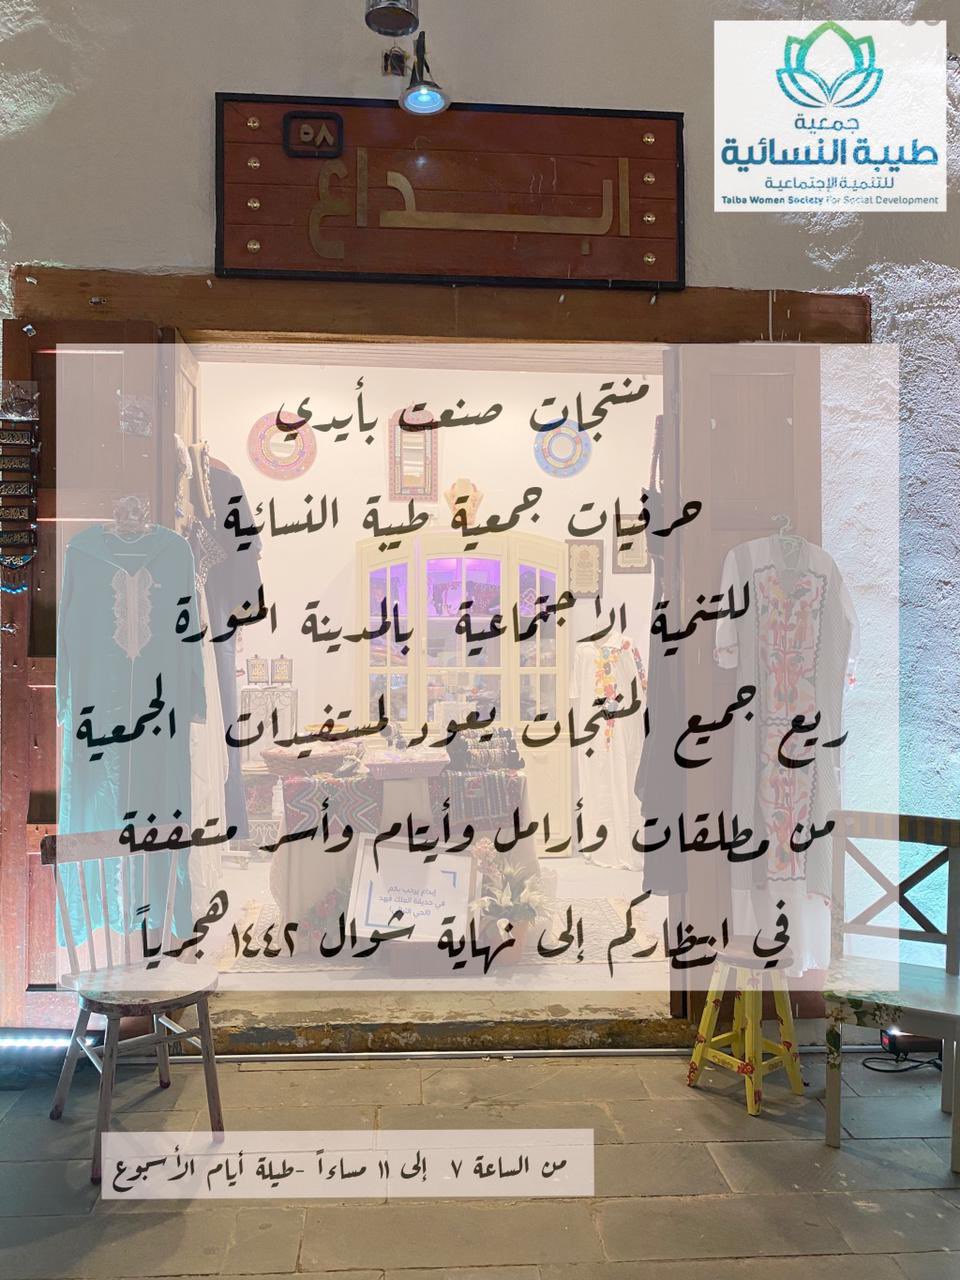 جمعية
طيبة النسائية
للتنمية الإجتماعية
Taiba Women Society For Social Development
٥٨
ابداع
منتجات صنعت بأيدي
حرفيات جمعية طيبة النسائية
للتنمية الاجتماعية بالمدينة المنورة
ريع جميع المنتجات يعود لمستفيدات الجمعية
من مطلقات وأرامل وأيتام وأسر متعففة
في انتظاركم إلى نهاية شوال ١٤٤٢هجرياً
إبداع يرحب بكم
في حديقة الملك فهد
من الساعة ٧ إلى ١١ مساءاً -طيلة أيام الأسبوع